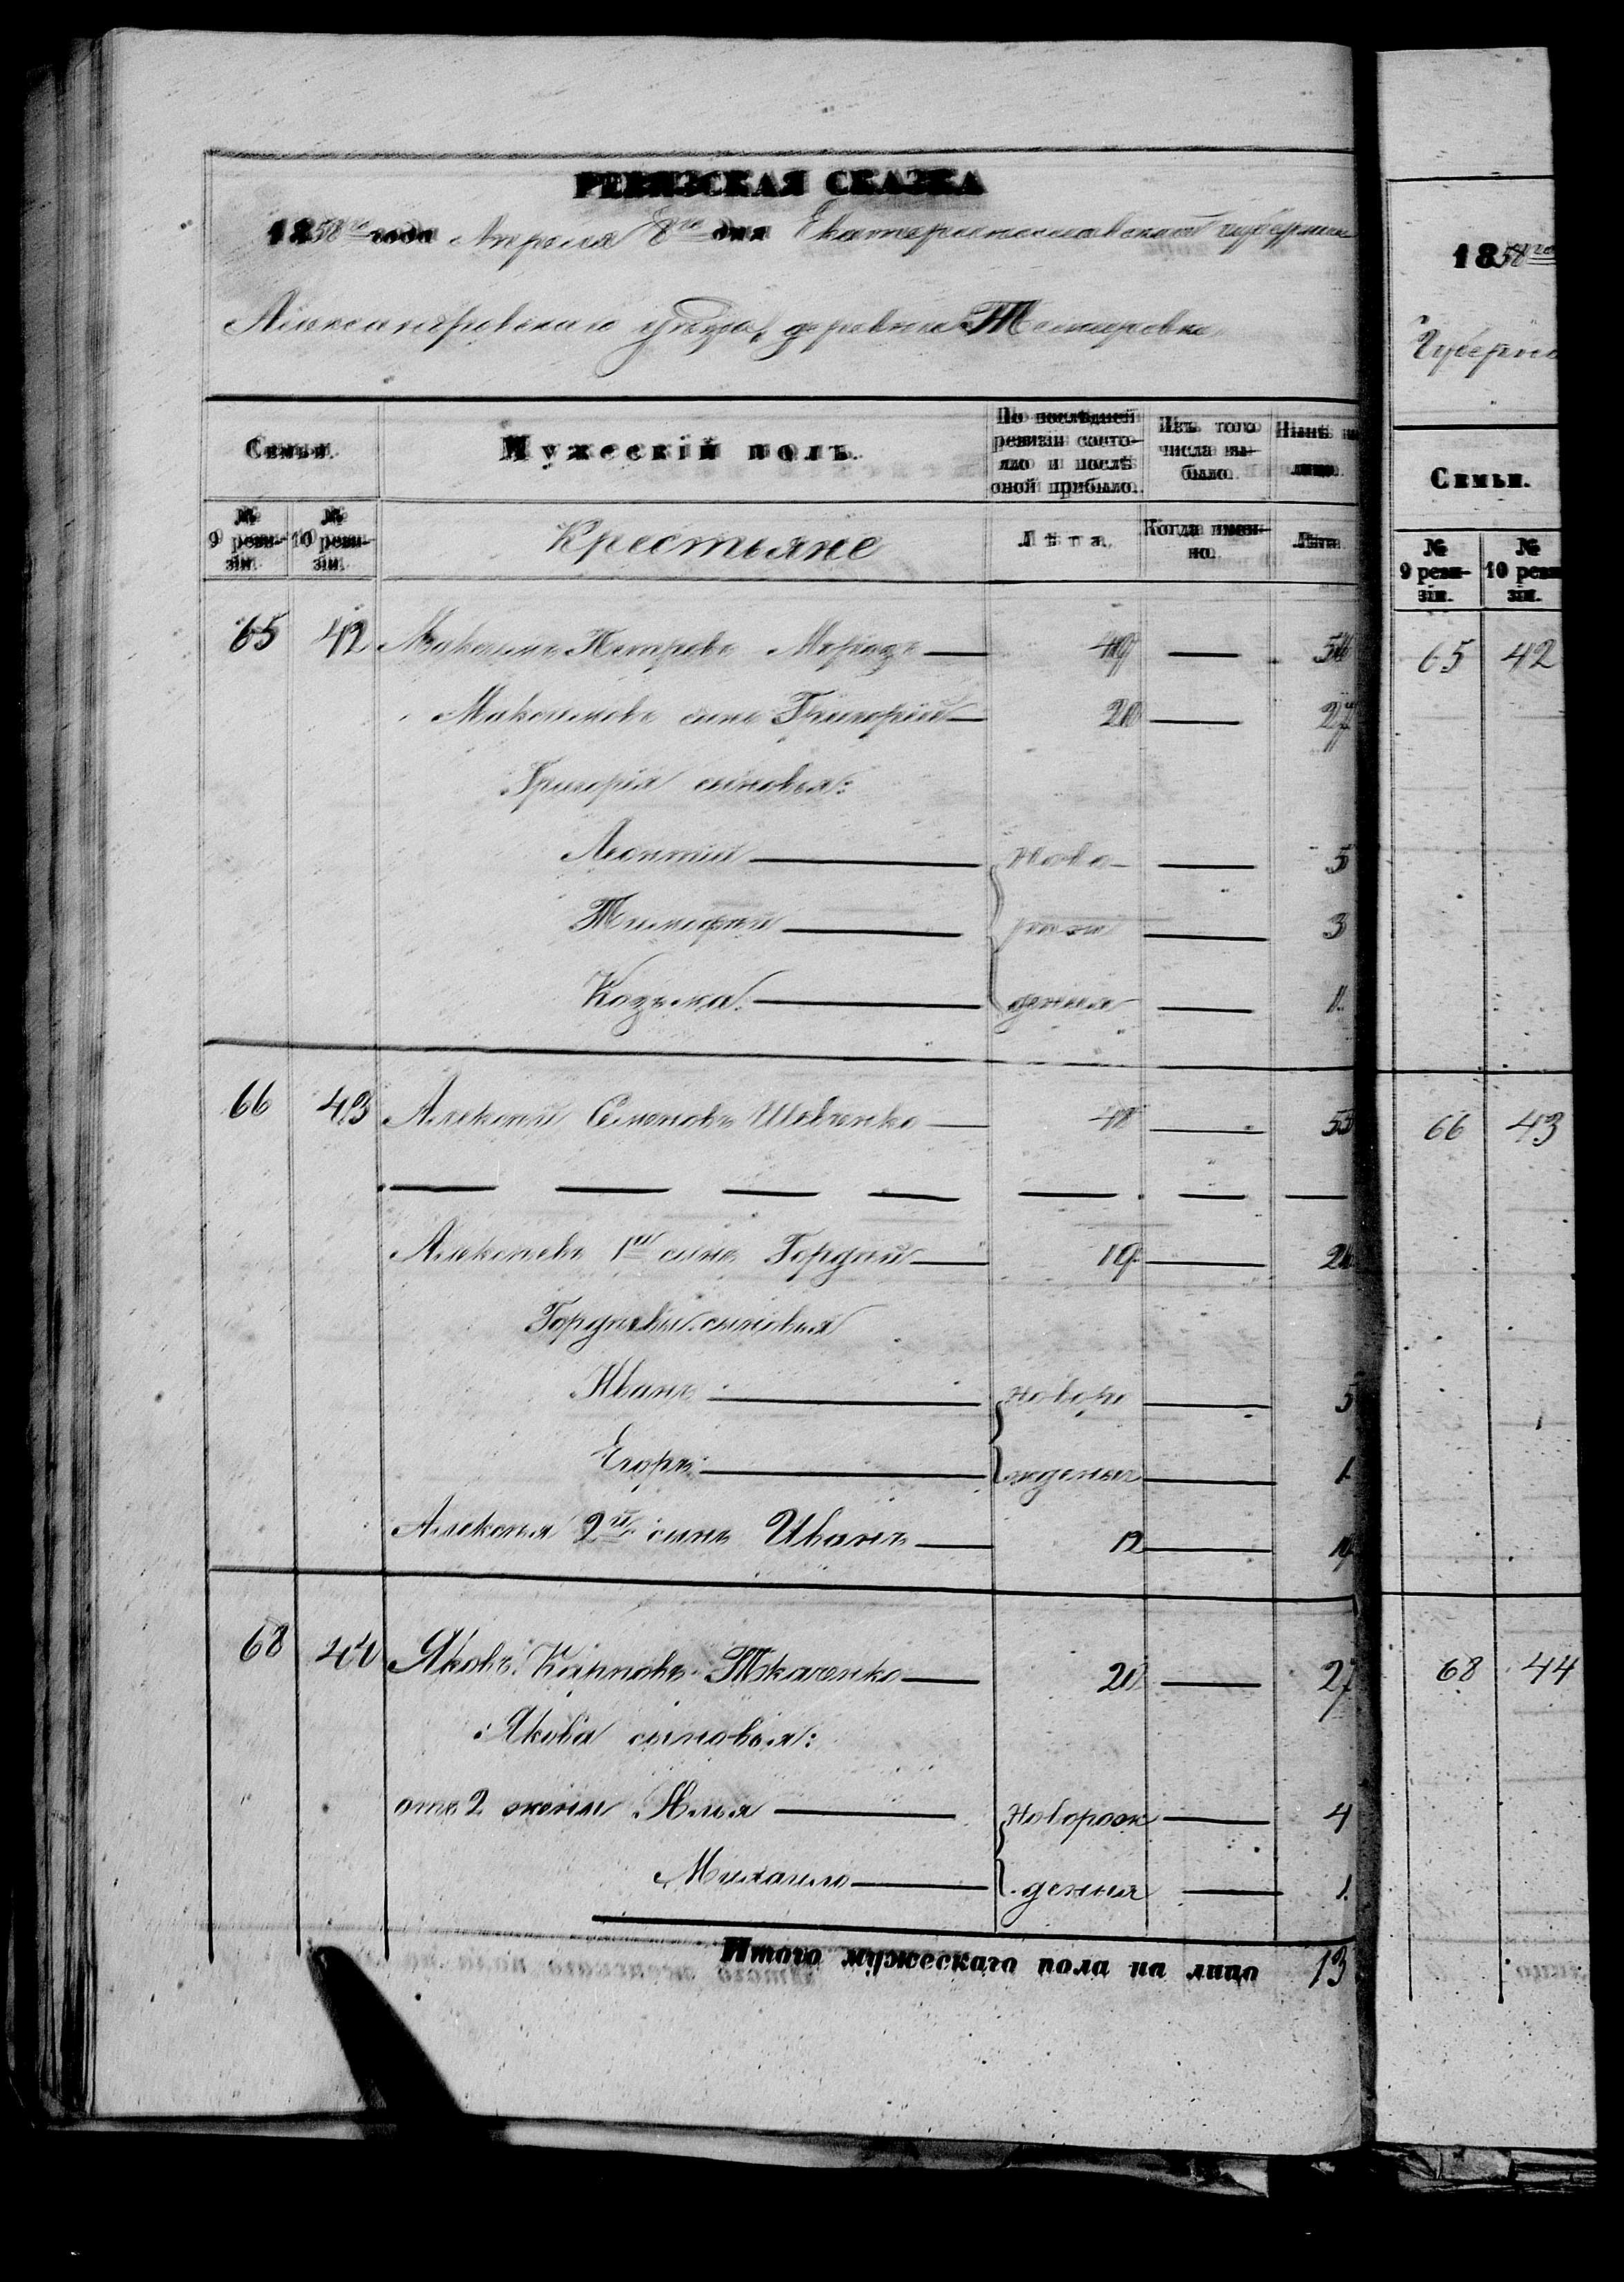 РЕВИЗСКАЯ СКАЗКА
1858го года Апреля 8го дня Екатеринославской губернии
Александровскаго уѣзда, деревни Темировки
Семьи. Мужескій полъ. По послѣдней ревизіи состояло и послѣ оной прибыло. Изъ того числа выбыло. Нынѣ на лицо.
№ 9 ревизіи. № 10 ревизіи. Крестьяне Лѣта. Когда именно. Лѣта.
65 42 Максимъ Петровъ 49 — 56
Максимовъ сынъ Григорій — 20 — 27
Григорія сыновья:
Леонтій — Ново — 5
Тимофей — рож — 3
Козьма — денныя — 1
66 43 Алексѣй Семеновъ Шевченко — 48 — 55
Алексѣевъ 1й сынъ Гордѣй — 19 — 26
Гордѣевы сыновья
Иванъ — новоро — 5
Егоръ — жденныя — 1
Алексѣя 2й сынъ Иванъ — 12 — 19
68 44 Яковъ Карповъ Ткаченко — 20 — 27
Якова сыновья:
отъ 2 жены Илья — Новорож — 4
Михаило — денныя — 1
Итого мужескаго пола на лицо 13
1858го
Губерніи
Семьи.
№ 9 ревизіи. № 10 ревизіи.
65 42
66 43
68 44